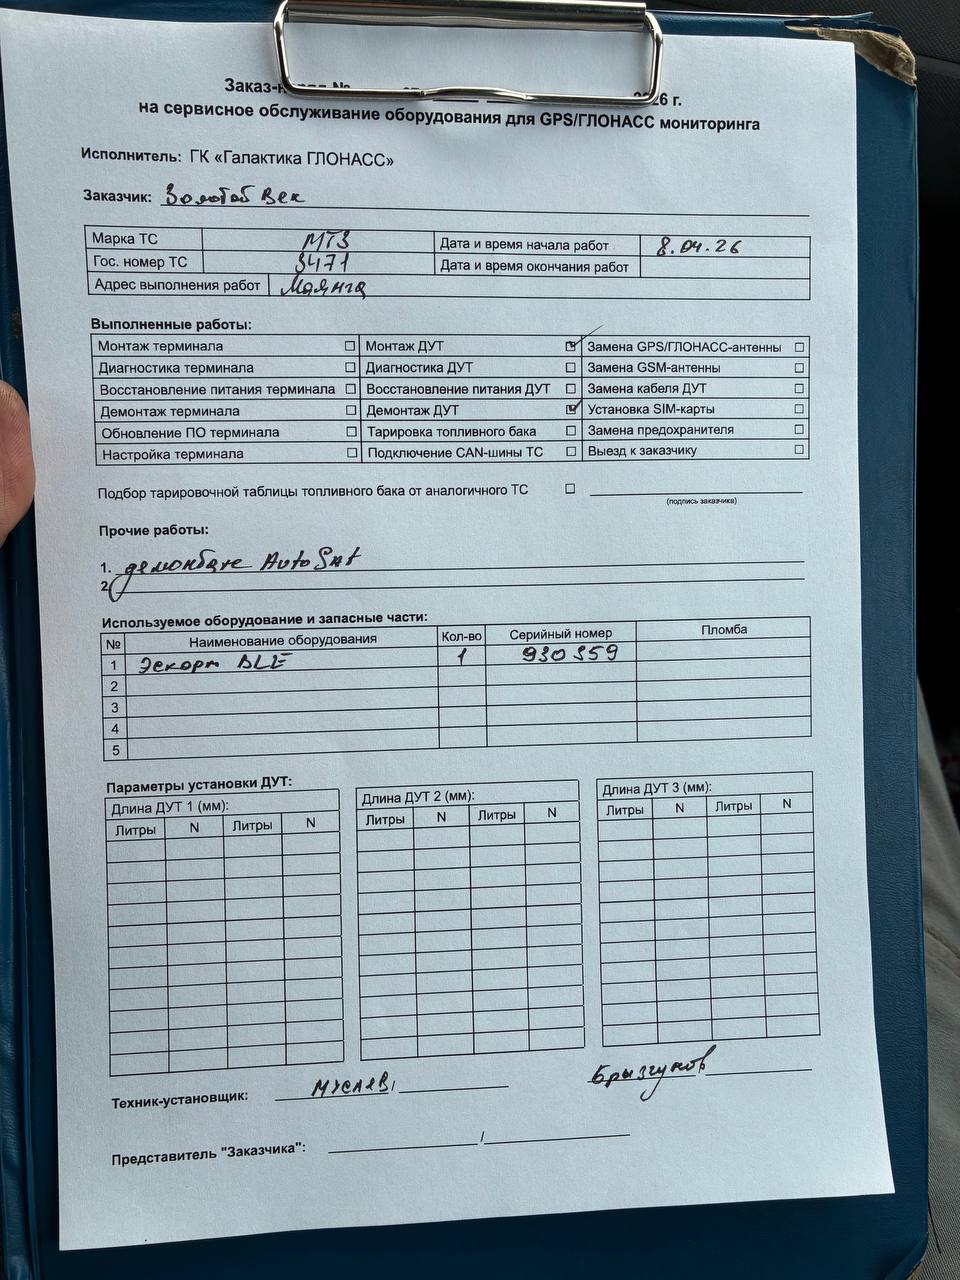 Заказ-наряд № от 2026 г.
на сервисное обслуживание оборудования для GPS/ГЛОНАСС мониторинга
Исполнитель: ГК «Галактика ГЛОНАСС»
Заказчик: Золотой Век
Марка ТС МТЗ Дата и время начала работ 8.04.26
Гос. номер ТС 3471 Дата и время окончания работ
Адрес выполнения работ Маянга
Выполненные работы:
Монтаж терминала ☐ Монтаж ДУТ ☑ Замена GPS/ГЛОНАСС-антенны ☐
Диагностика терминала ☐ Диагностика ДУТ ☐ Замена GSM-антенны ☐
Восстановление питания терминала ☐ Восстановление питания ДУТ ☐ Замена кабеля ДУТ ☐
Демонтаж терминала ☐ Демонтаж ДУТ ☑ Установка SIM-карты ☐
Обновление ПО терминала ☐ Тарировка топливного бака ☐ Замена предохранителя ☐
Настройка терминала ☐ Подключение CAN-шины ТС ☐ Выезд к заказчику ☐
Подбор тарировочной таблицы топливного бака от аналогичного ТС ☐
(подпись заказчика)
Прочие работы:
1. демонтаж AutoSat
2.
Используемое оборудование и запасные части:
№ Наименование оборудования Кол-во Серийный номер Пломба
1 Эскорт BLE 1 930359
2
3
4
5
Параметры установки ДУТ:
Длина ДУТ 1 (мм): Длина ДУТ 2 (мм): Длина ДУТ 3 (мм):
Литры N Литры N Литры N Литры N Литры N Литры N
Техник-установщик: Брызгунов
Представитель "Заказчика": /